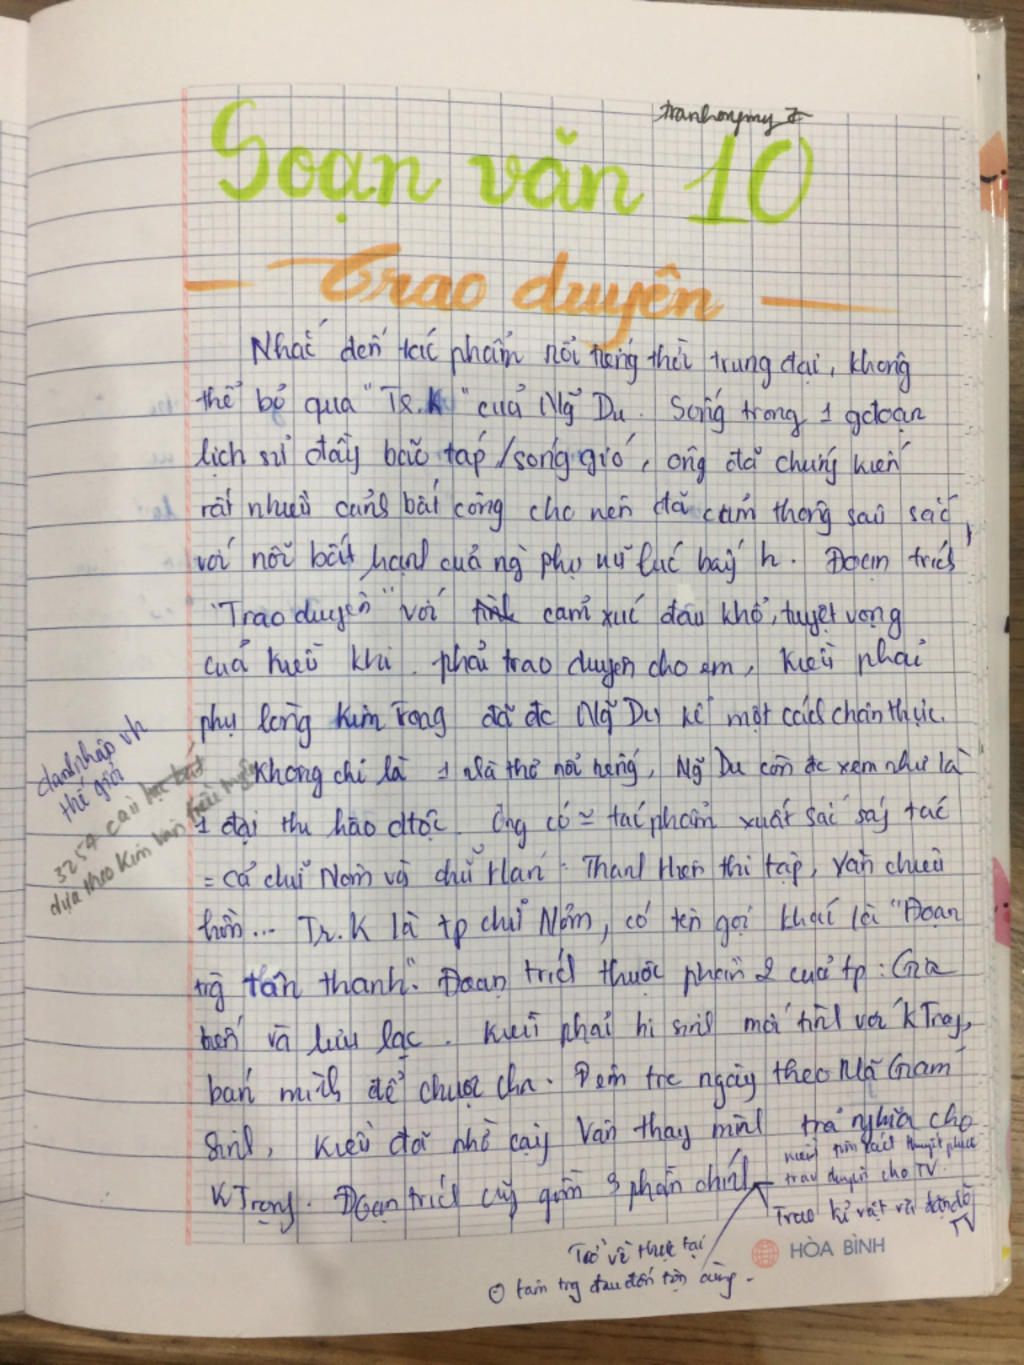 tranhongmy
Soạn văn 10
Trao duyên
Nhắc đến tác phẩm nổi tiếng thời trung đại, không
thể bỏ qua "Tr.K" của Ng̃ Du. Sống trong 1 gđoạn
lịch sử đầy bão táp/sóng gió, ông đã chứng kiến
rất nhiều cảnh bất công cho nên đã cảm thông sâu sắc
với nỗi bất hạnh của ng̀ phụ nữ lúc bấy h. Đoạn trích
"Trao duyên" với cảm xúc đau khổ, tuyệt vọng
của Kiều khi phải trao duyên cho em, Kiều phải
phụ lòng Kim Trọng đã đc Ng̃ Du kể một cách chân thực.
danh nhân vh
thế giới
Không chỉ là 1 nhà thơ nổi tiếng, Ng̃ Du còn đc xem như là
3254 câu lục bát
dựa theo Kim Vân Kiều truyện
1 đại thi hào dtộc. Ông có ≈ tác phẩm xuất sắc sáng tác
= cả chữ Nôm và chữ Hán: Thanh Hiên thi tập, Văn chiêu
hồn... Tr.K là tp chữ Nôm, có tên gọi khác là "Đoạn
trg tân thanh". Đoạn trích thuộc phần 2 của tp: Gia
biến và lưu lạc. Kiều phải hi sinh mối tình với KTrọng,
bán mình để chuộc cha. Đêm trc ngày theo Mã Giám
Sinh, Kiều đã nhờ cậy Vân thay mình trả nghĩa cho
KTrọng. Đoạn trích cg̃ gồm 3 phần chính
Kiều tìm cách thuyết phục
trao duyên cho TV
Trao kỉ vật và dặn dò
TV
Trở về thực tại
tâm trg đau đớn tột cùng.
HÒA BÌNH